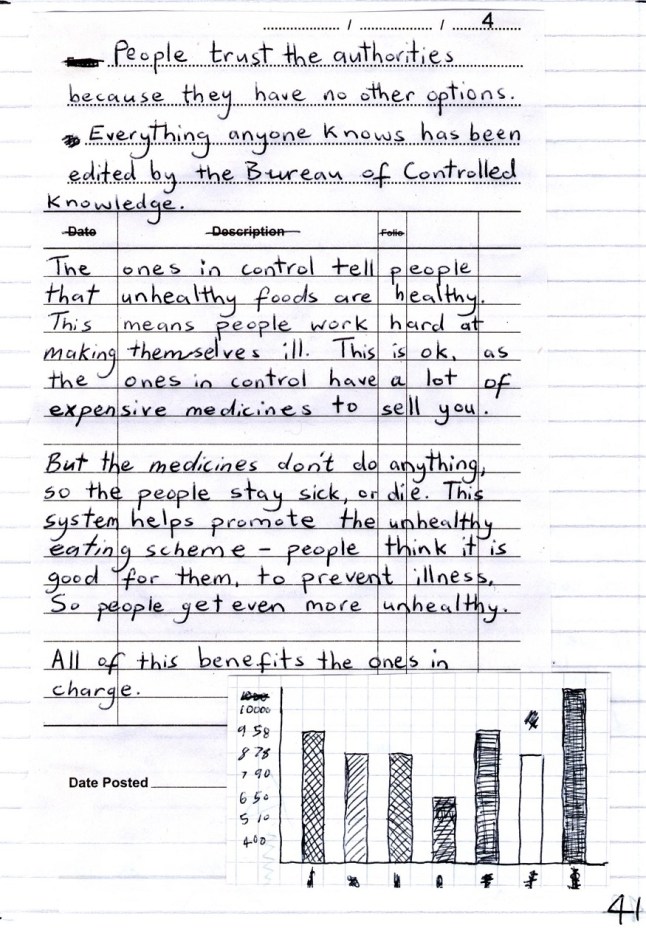 / / 4
People trust the authorities
because they have no other options.
Everything anyone knows has been
edited by the Bureau of Controlled
Knowledge.
Date Description Folio
The ones in control tell people
that unhealthy foods are healthy.
This means people work hard at
making themselves ill. This is ok, as
the ones in control have a lot of
expensive medicines to sell you.
But the medicines don't do anything,
so the people stay sick, or die. This
system helps promote the unhealthy
eating scheme - people think it is
good for them, to prevent illness,
So people get even more unhealthy.
All of this benefits the ones in
charge.
10000
958
878
790
650
510
400
Date Posted
41